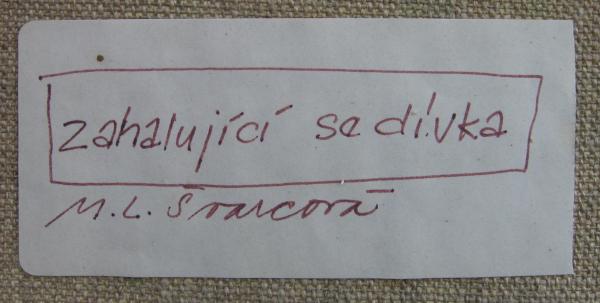 zahalující se dívka
M. L. Švarcová